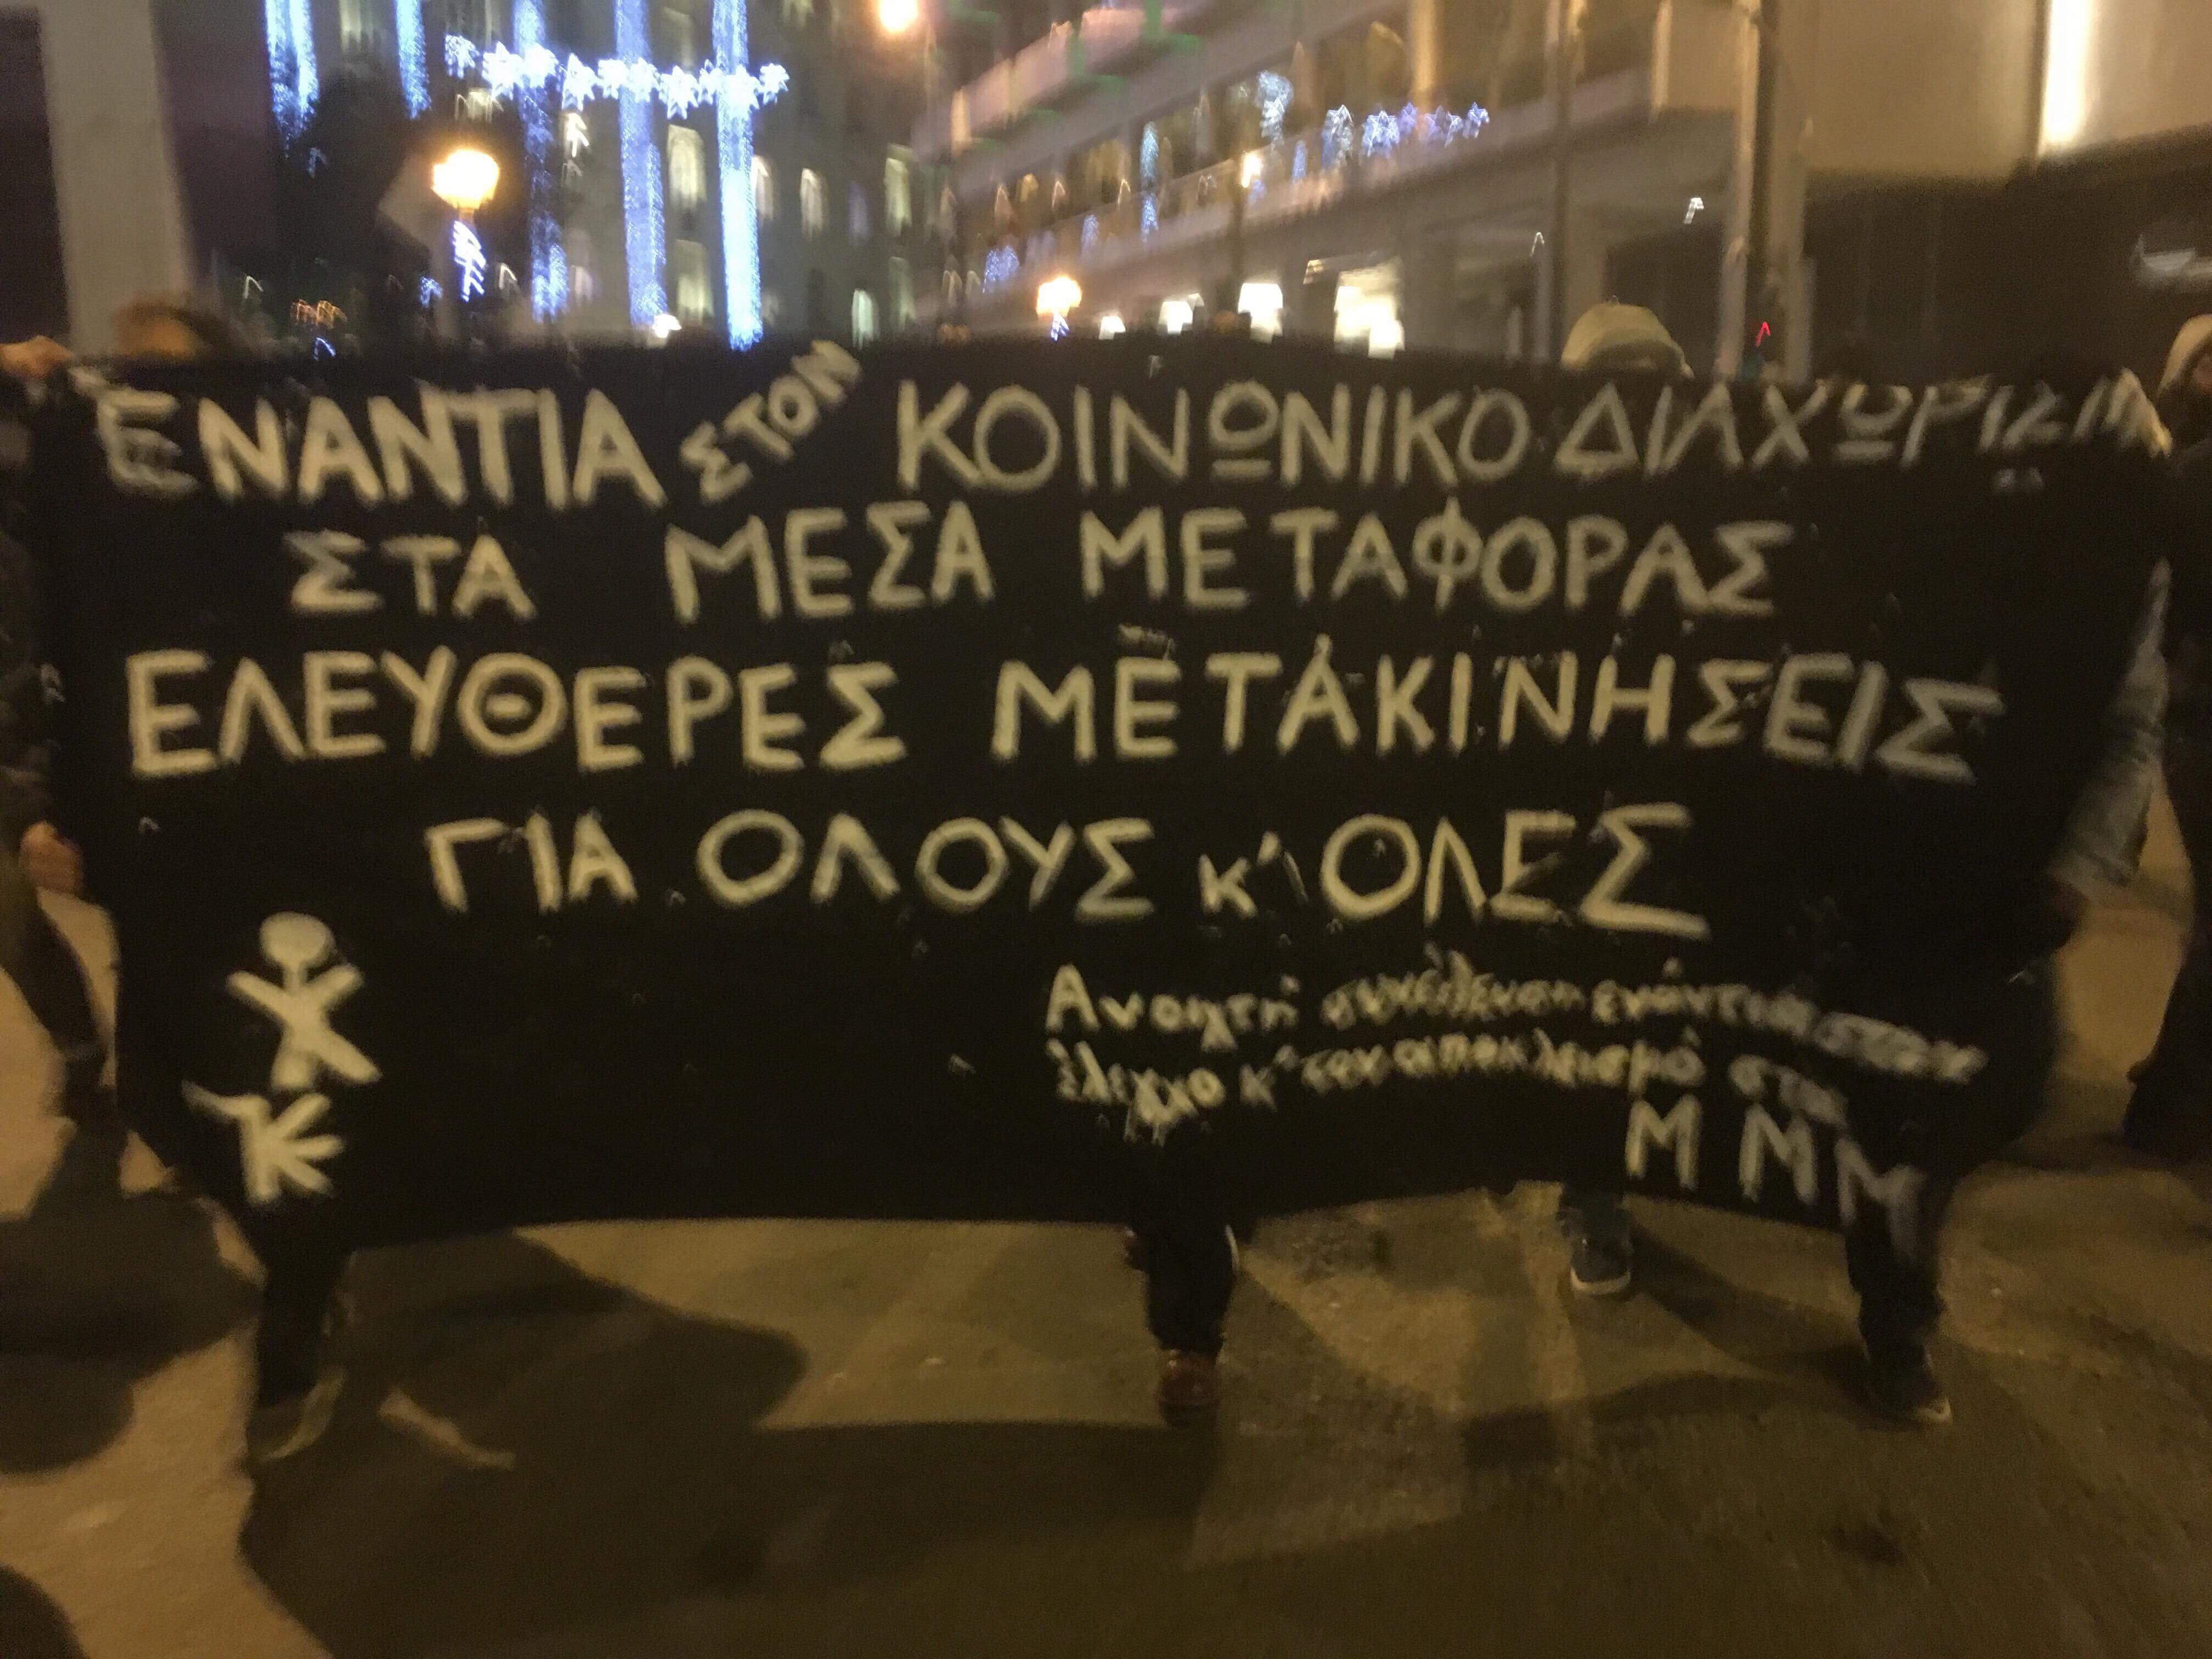 ΕΝΑΝΤΙΑ ΣΤΟΝ ΚΟΙΝΩΝΙΚΟ ΔΙΑΧΩΡΙΣΜ
ΣΤΑ ΜΕΣΑ ΜΕΤΑΦΟΡΑΣ
ΕΛΕΥΘΕΡΕΣ ΜΕΤΑΚΙΝΗΣΕΙΣ
ΓΙΑ ΟΛΟΥΣ κ' ΟΛΕΣ
Ανοιχτή συνέλευση ενάντια στον
έλεγχο κ' τον αποκλεισμό στα
ΜΜΜ